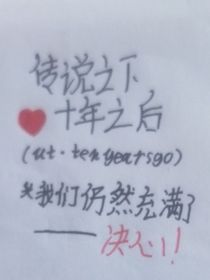 传说之下,
十年之后
(ut·tenyearsgo)
我们仍然充满了
——决心!!